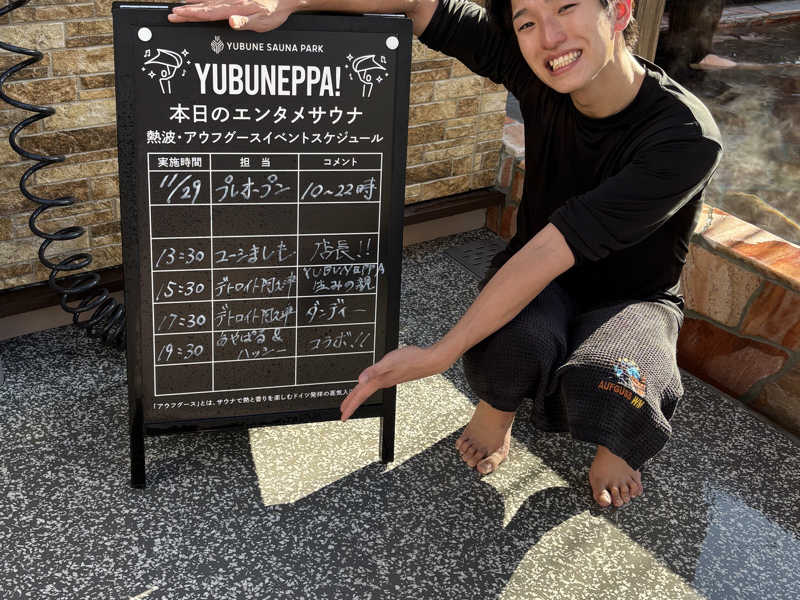 YUBUNE SAUNA PARK
YUBUNEPPA!
本日のエンタメサウナ
熱波・アウフグースイベントスケジュール
実施時間 担当 コメント
11/29 プレオープン 10〜22時
13:30 ユーシましも 店長!!
15:30 デトロイト阿久津 YUBUNEPPA 生みの親
17:30 デトロイト阿久津 ダンディー
19:30 あやぱる& ハッシー コラボ!!
「アウフグース」とは、サウナで熱と香りを楽しむドイツ発祥の蒸気
AUFGUSS